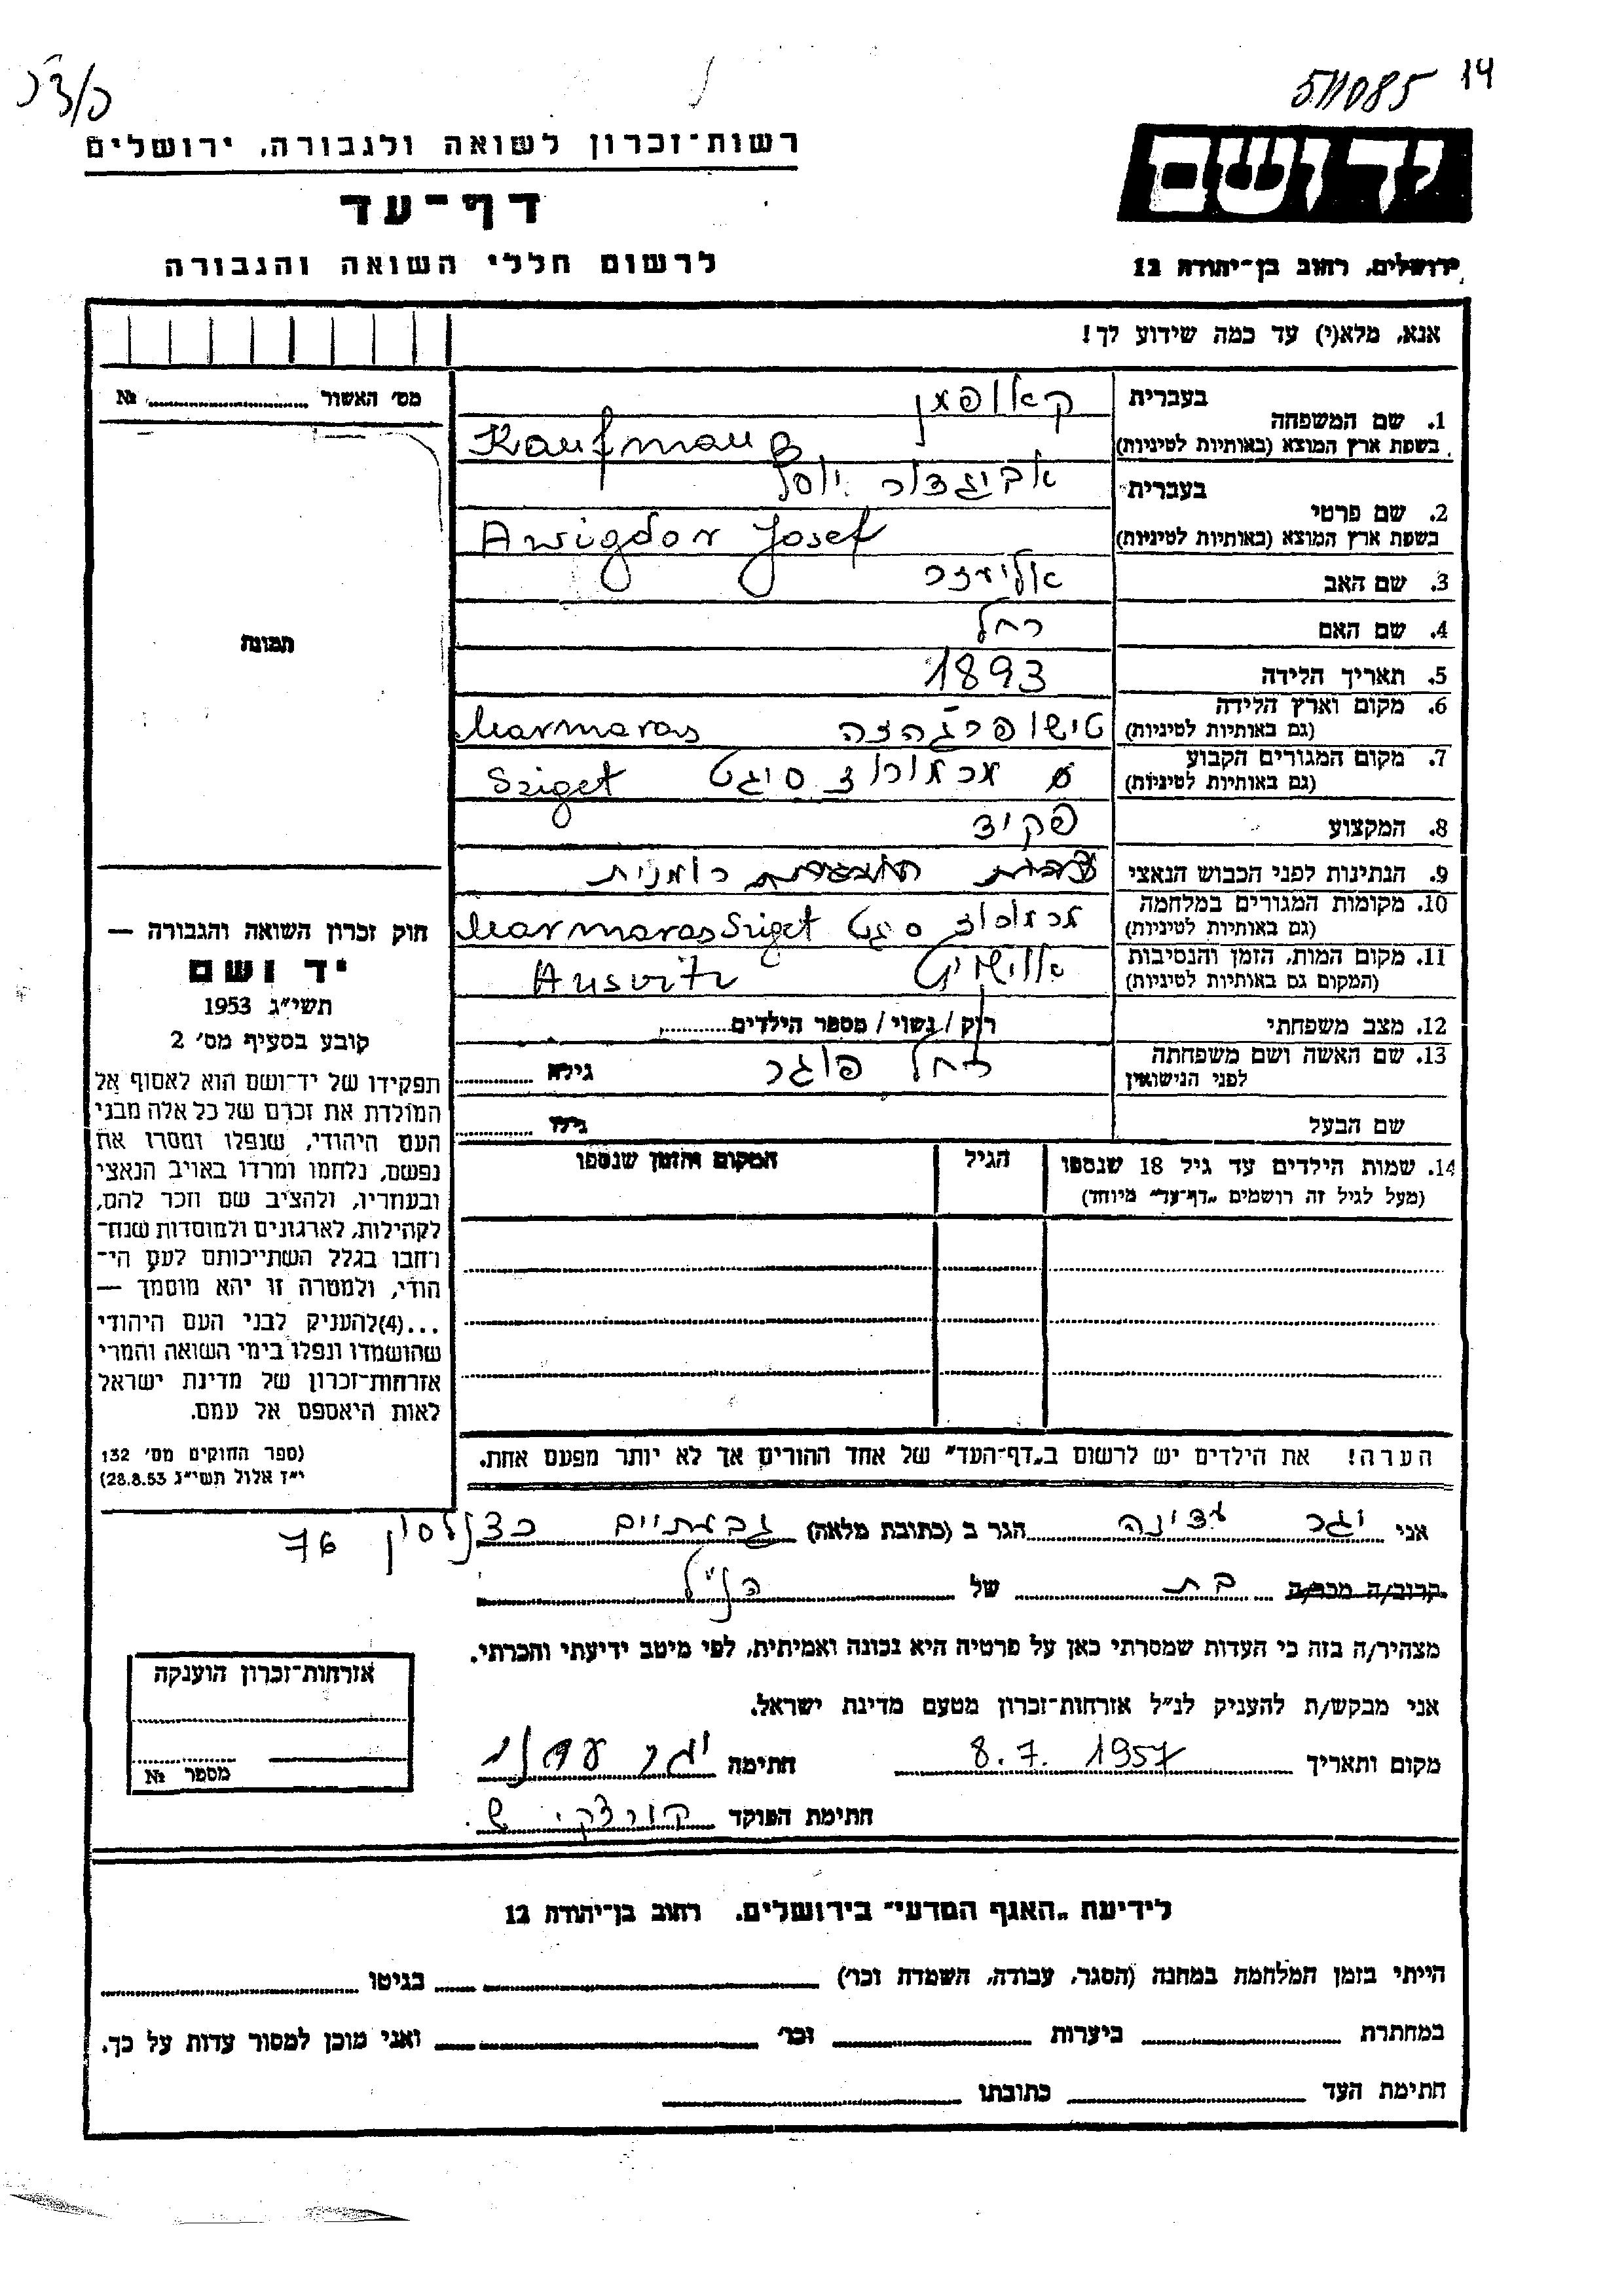 511085 14
רשות־זכרון לשואה ולגבורה, ירושלים
יד ושם
דף־עד
ירושלים, רחוב בן־יהודה 12
לרשום חללי השואה והגבורה
אנא, מלא(י) עד כמה שידוע לך!
מס׳ האשור № 
1. שם המשפחה
בעברית קאופמן
בשפת ארץ המוצא (באותיות לטיניות) Kaufmann
2. שם פרטי
בעברית אביגדור יוסף
בשפת ארץ המוצא (באותיות לטיניות) Awigdor Josef
3. שם האב אליעזר
4. שם האם רחל
5. תאריך הלידה 1893
6. מקום וארץ הלידה
(גם באותיות לטיניות) Marmaras
7. מקום המגורים הקבוע
(גם באותיות לטיניות) סיגט Sziget
8. המקצוע פקיד
9. הנתינות לפני הכבוש הנאצי רומנית
10. מקומות המגורים במלחמה
(גם באותיות לטיניות) סיגט Marmaras Sziget
11. מקום המות, הזמן והנסיבות
(המקום גם באותיות לטיניות) אושויץ Ausvitz
12. מצב משפחתי רוק / נשוי / מספר הילדים
13. שם האשה ושם משפחתה
לפני הנישואין רחל גילא
שם הבעל גילו
14. שמות הילדים עד גיל 18 שנספו הגיל המקום והזמן שנספו
(מעל לגיל זה רושמים „דף־עד״ מיוחד)
הערה! את הילדים יש לרשום ב„דף־העד״ של אחד ההורים אך לא יותר מפעם אחת.
תמונה
חוק זכרון השואה והגבורה —
יד ושם
תשי״ג 1953
קובע בסעיף מס׳ 2
תפקידו של יד־ושם הוא לאסוף אל
המולדת את זכרם של כל אלה מבני
העם היהודי, שנפלו ומסרו את
נפשם, נלחמו ומרדו באויב הנאצי
ובעוזריו, ולהציב שם וזכר להם,
לקהילות, לארגונים ולמוסדות שנח־
רחבו בגלל השתייכותם לעם הי־
הודי, ולמטרה זו יהא מוסמך —
...(4)להעניק לבני העם היהודי
שהושמדו ונפלו בימי השואה והמרי
אזרחות־זכרון של מדינת ישראל
לאות היאספם אל עמם.
(ספר החוקים מס׳ 132
י״ד אלול תשי״ג 28.8.53)
אני יגר עדינה הגר ב (כתובת מלאה) גבעתיים כצנלסון 76
קרוב/ה מכר/ה בת של הנ״ל
מצהיר/ה בזה כי העדות שמסרתי כאן על פרטיה היא נכונה ואמיתית, לפי מיטב ידיעתי והכרתי.
אני מבקש/ת להעניק לנ״ל אזרחות־זכרון מטעם מדינת ישראל.
מקום ותאריך 8.7.1957 חתימה
חתימת הפוקד
אזרחות־זכרון הוענקה
מספר №
לידיעת „האגף המדעי״ בירושלים, רחוב בן־יהודה 12
הייתי בזמן המלחמה במחנה (הסגר, עבודה, השמדה וכו׳) בגיטו
במחתרת ביערות וכו׳ ואני מוכן למסור עדות על כך.
חתימת העד כתובתו